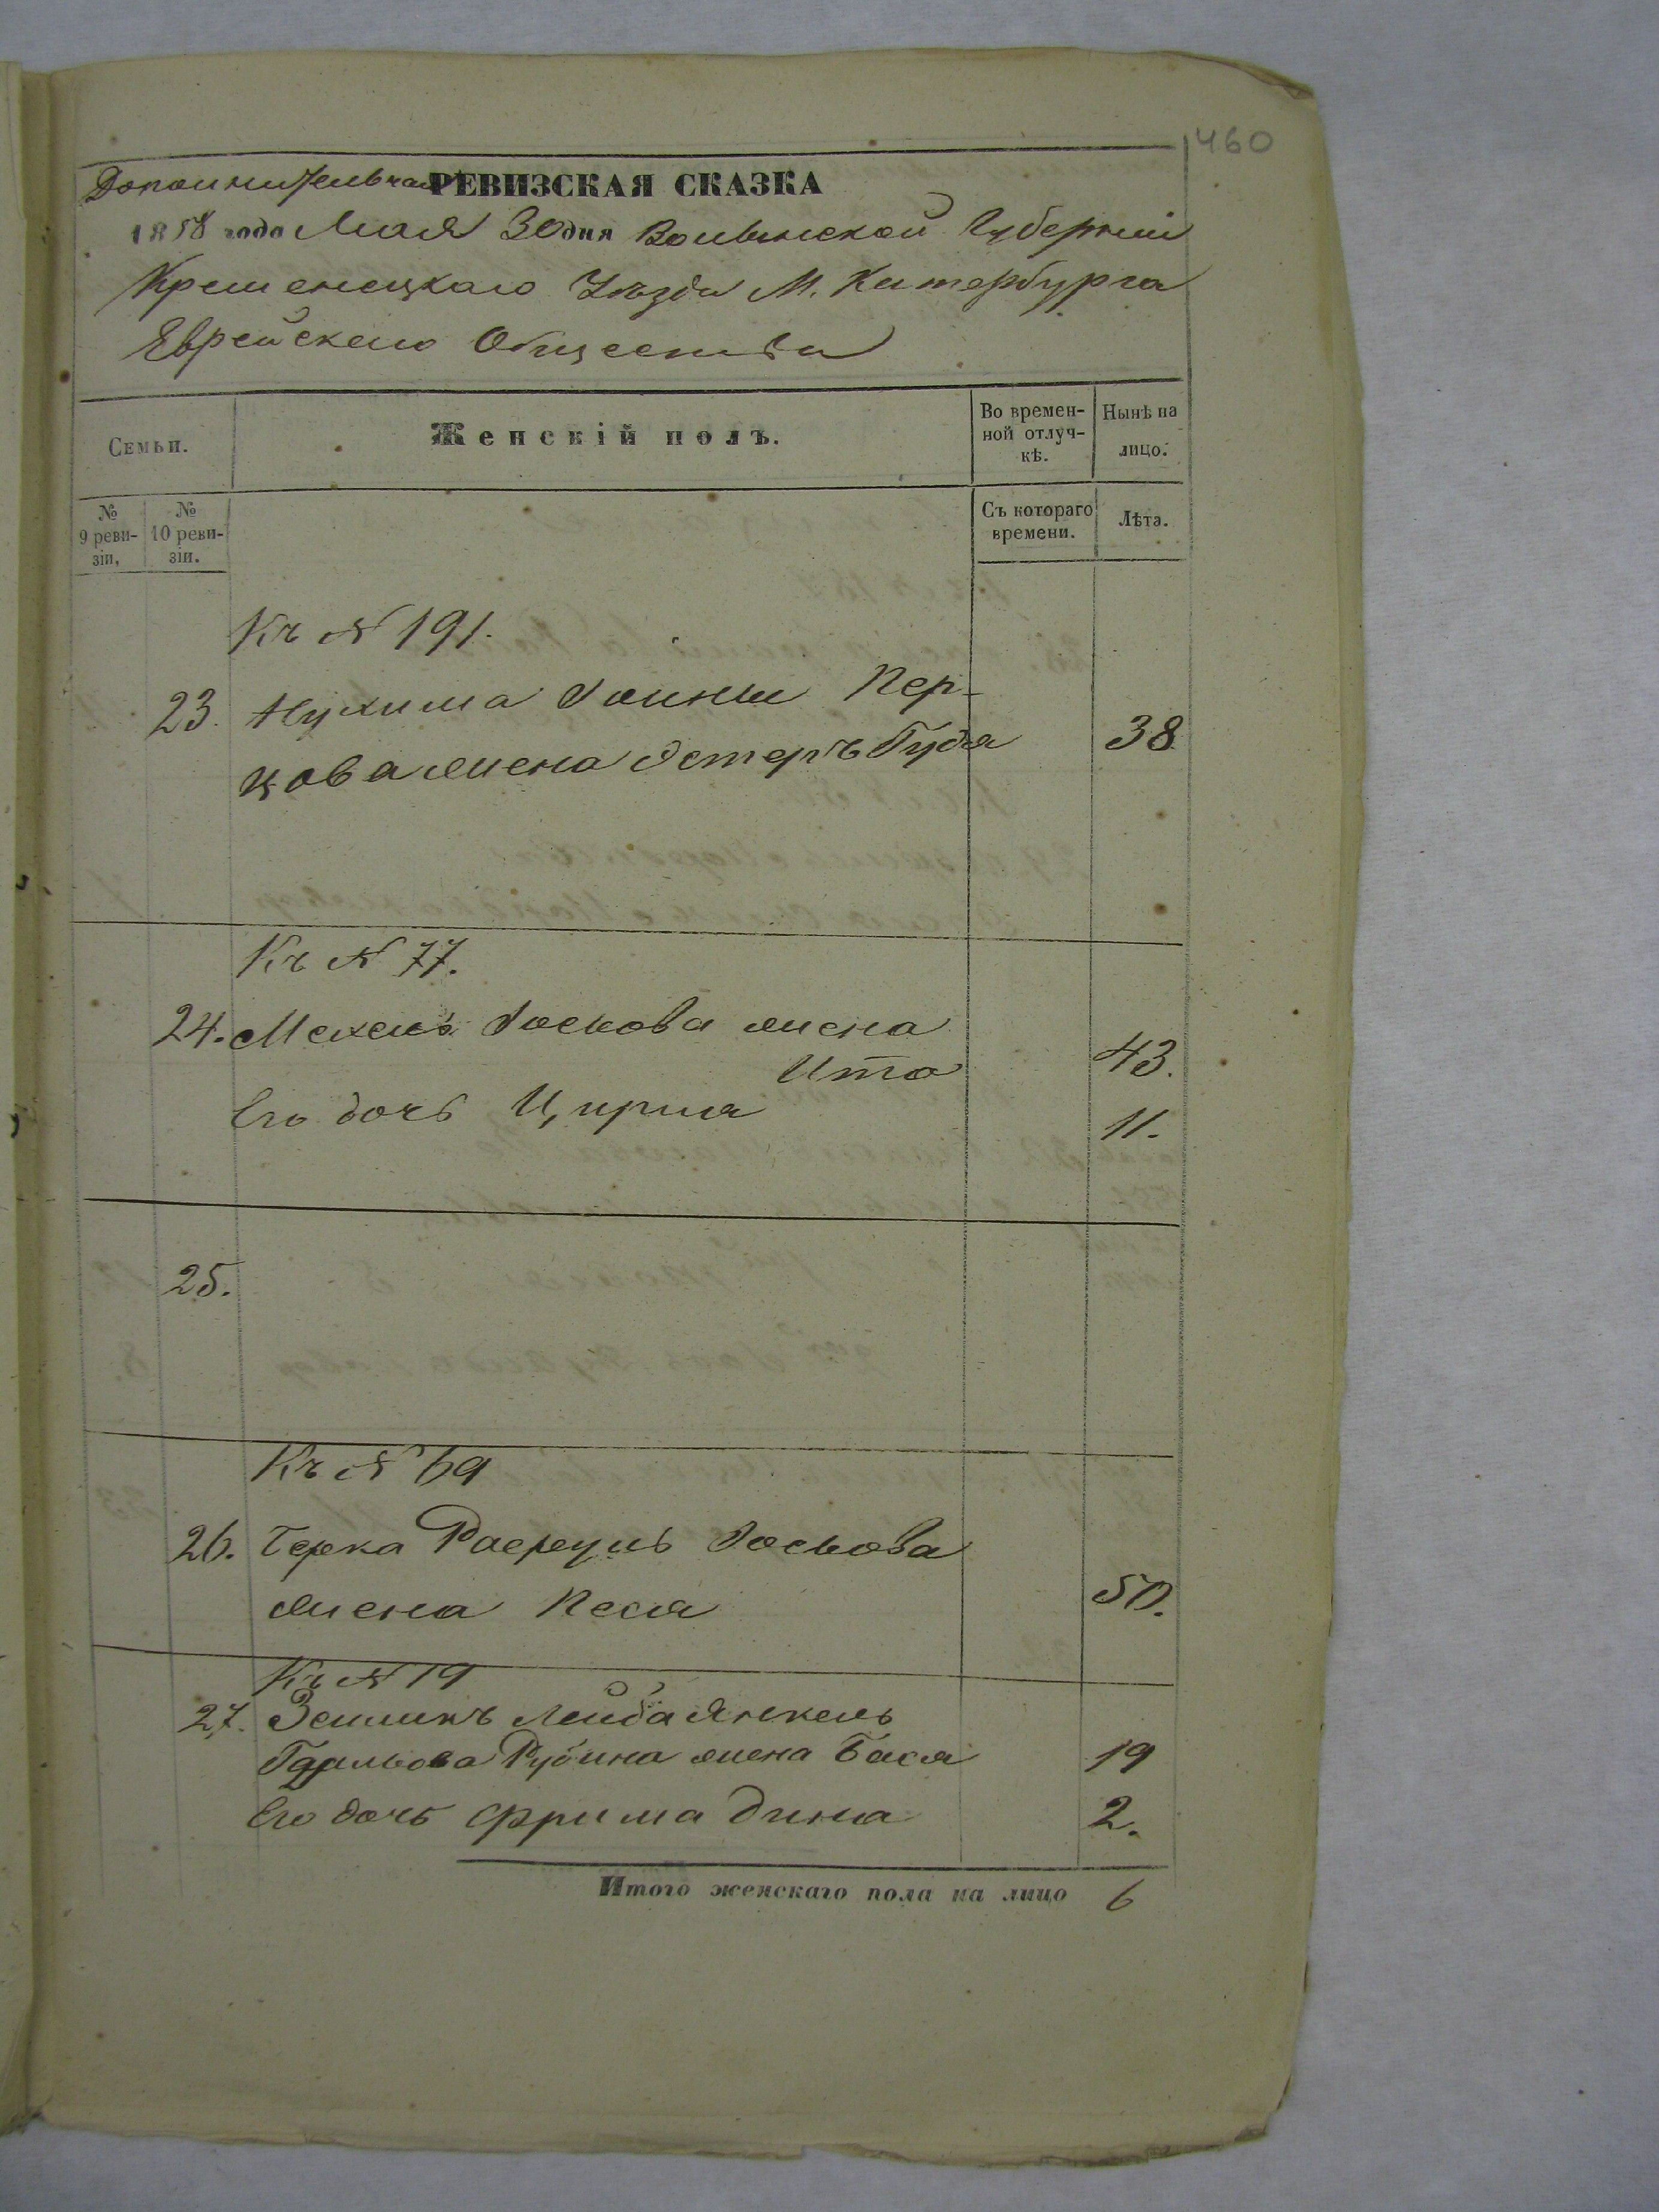 460
Дополнительная РЕВИЗСКАЯ СКАЗКА
1858 года Мая 30 дня Волынской Губерніи
Кременецкаго Уѣзда М. Катербурга
Еврейскаго Общества
Семьи. Женскій полъ. Во времен-ной отлуч-кѣ. Нынѣ на лицо.
№ 9 реви-зіи. № 10 реви-зіи. Съ котораго времени. Лѣта.
Къ № 191.
23. Нухима Іоины Пер-
цова жена Эстеръ Гудя 38
Къ № 77.
24. Мехель Іоськова жена
Ита 43.
Его дочь Ципря 11.
25.
Къ № 69
26. Берка Расруль Іоськова
жена Песя 50.
Къ № 19
27. Зейликъ Лейба Янкель
Гдальова Рубина жена Бася 19
Его дочь Фрима Дина 2.
Итого женскаго пола на лицо 6